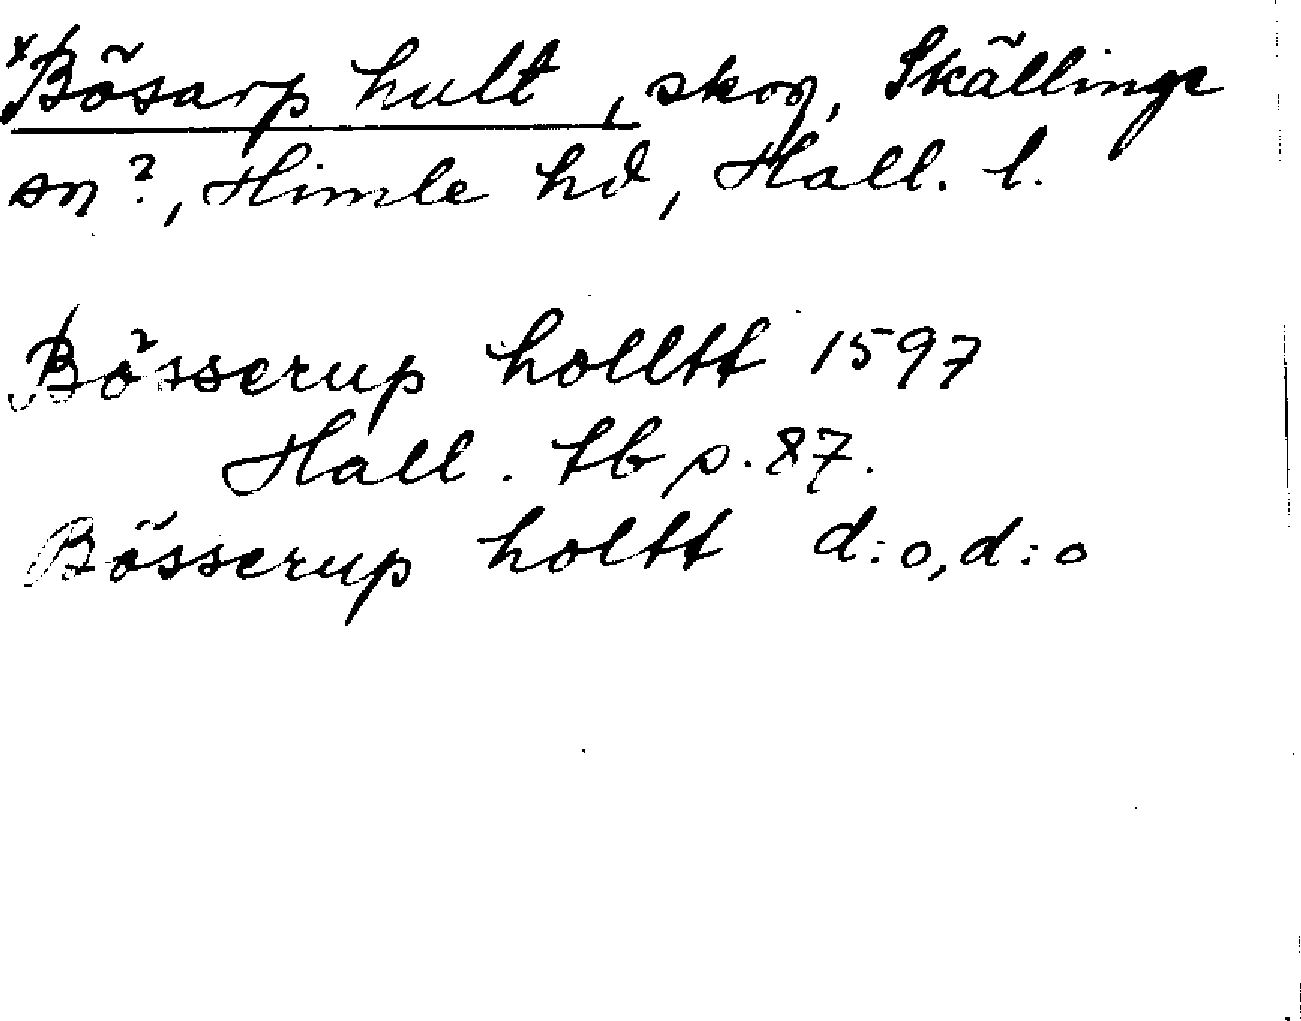 *Bösarp hult, skog, Skällinge
sn?, Himle hd, Hall. l.
Bösserup holltt 1597
Hall. tb s. 87.
Bösserup holtt d:o, d:o